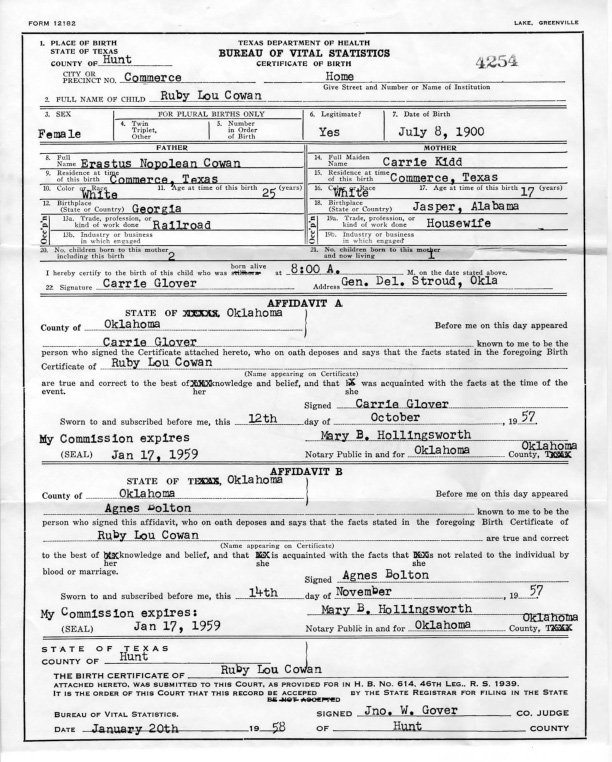 FORM 12182 LAKE, GREENVILLE
1. PLACE OF BIRTH TEXAS DEPARTMENT OF HEALTH
STATE OF TEXAS BUREAU OF VITAL STATISTICS
COUNTY OF Hunt CERTIFICATE OF BIRTH 4254
CITY OR
PRECINCT NO. Commerce Home
Give Street and Number or Name of Institution
2. FULL NAME OF CHILD Ruby Lou Cowan
3. SEX FOR PLURAL BIRTHS ONLY 6. Legitimate? 7. Date of Birth
4. Twin Triplet, Other 5. Number in Order of Birth
Female Yes July 8, 1900
FATHER MOTHER
8. Full Name Erastus Nopolean Cowan 14. Full Maiden Name Carrie Kidd
9. Residence at time of this birth Commerce, Texas 15. Residence at time of this birth Commerce, Texas
10. Color or Race White 11. Age at time of this birth 25 (years) 16. Color or Race White 17. Age at time of this birth 17 (years)
12. Birthplace (State or Country) Georgia 18. Birthplace (State or Country) Jasper, Alabama
Occp'n 13a. Trade, profession, or kind of work done Railroad Occp'n 19a. Trade, profession, or kind of work done Housewife
13b. Industry or business in which engaged 19b. Industry or business in which engaged
20. No. children born to this mother including this birth 2 21. No. children born to this mother and now living 1
I hereby certify to the birth of this child who was born alive stillborn at 8:00 A. M. on the date stated above.
22. Signature Carrie Glover Address Gen. Del. Stroud, Okla
AFFIDAVIT A
STATE OF XXXXX, Oklahoma
County of Oklahoma Before me on this day appeared
Carrie Glover known to me to be the
person who signed the Certificate attached hereto, who on oath deposes and says that the facts stated in the foregoing Birth
Certificate of Ruby Lou Cowan
(Name appearing on Certificate)
are true and correct to the best of XXX knowledge and belief, and that XX was acquainted with the facts at the time of the
event. her she
Signed Carrie Glover
Sworn to and subscribed before me, this 12th day of October, 19 57
My Commission expires Mary B. Hollingsworth
(SEAL) Jan 17, 1959 Notary Public in and for Oklahoma County, TXXXX Oklahoma
AFFIDAVIT B
STATE OF TEXXXX, Oklahoma
County of Oklahoma Before me on this day appeared
Agnes Bolton known to me to be the
person who signed this affidavit, who on oath deposes and says that the facts stated in the foregoing Birth Certificate of
Ruby Lou Cowan are true and correct
(Name appearing on Certificate)
to the best of XXX knowledge and belief, and that XX is acquainted with the facts that XX is not related to the individual by
her she she
blood or marriage.
Signed Agnes Bolton
Sworn to and subscribed before me, this 14th day of November, 19 57
My Commission expires: Mary B. Hollingsworth
(SEAL) Jan 17, 1959 Notary Public in and for Oklahoma County, TXXXX Oklahoma
STATE OF TEXAS
COUNTY OF Hunt
THE BIRTH CERTIFICATE OF Ruby Lou Cowan
ATTACHED HERETO, WAS SUBMITTED TO THIS COURT, AS PROVIDED FOR IN H. B. NO. 614, 46TH LEG., R. S. 1939.
IT IS THE ORDER OF THIS COURT THAT THIS RECORD BE ACCEPED BY THE STATE REGISTRAR FOR FILING IN THE STATE
BE NOT ACCEPTED
BUREAU OF VITAL STATISTICS. SIGNED Jno. W. Gover CO. JUDGE
DATE January 20th 19 58 OF Hunt COUNTY